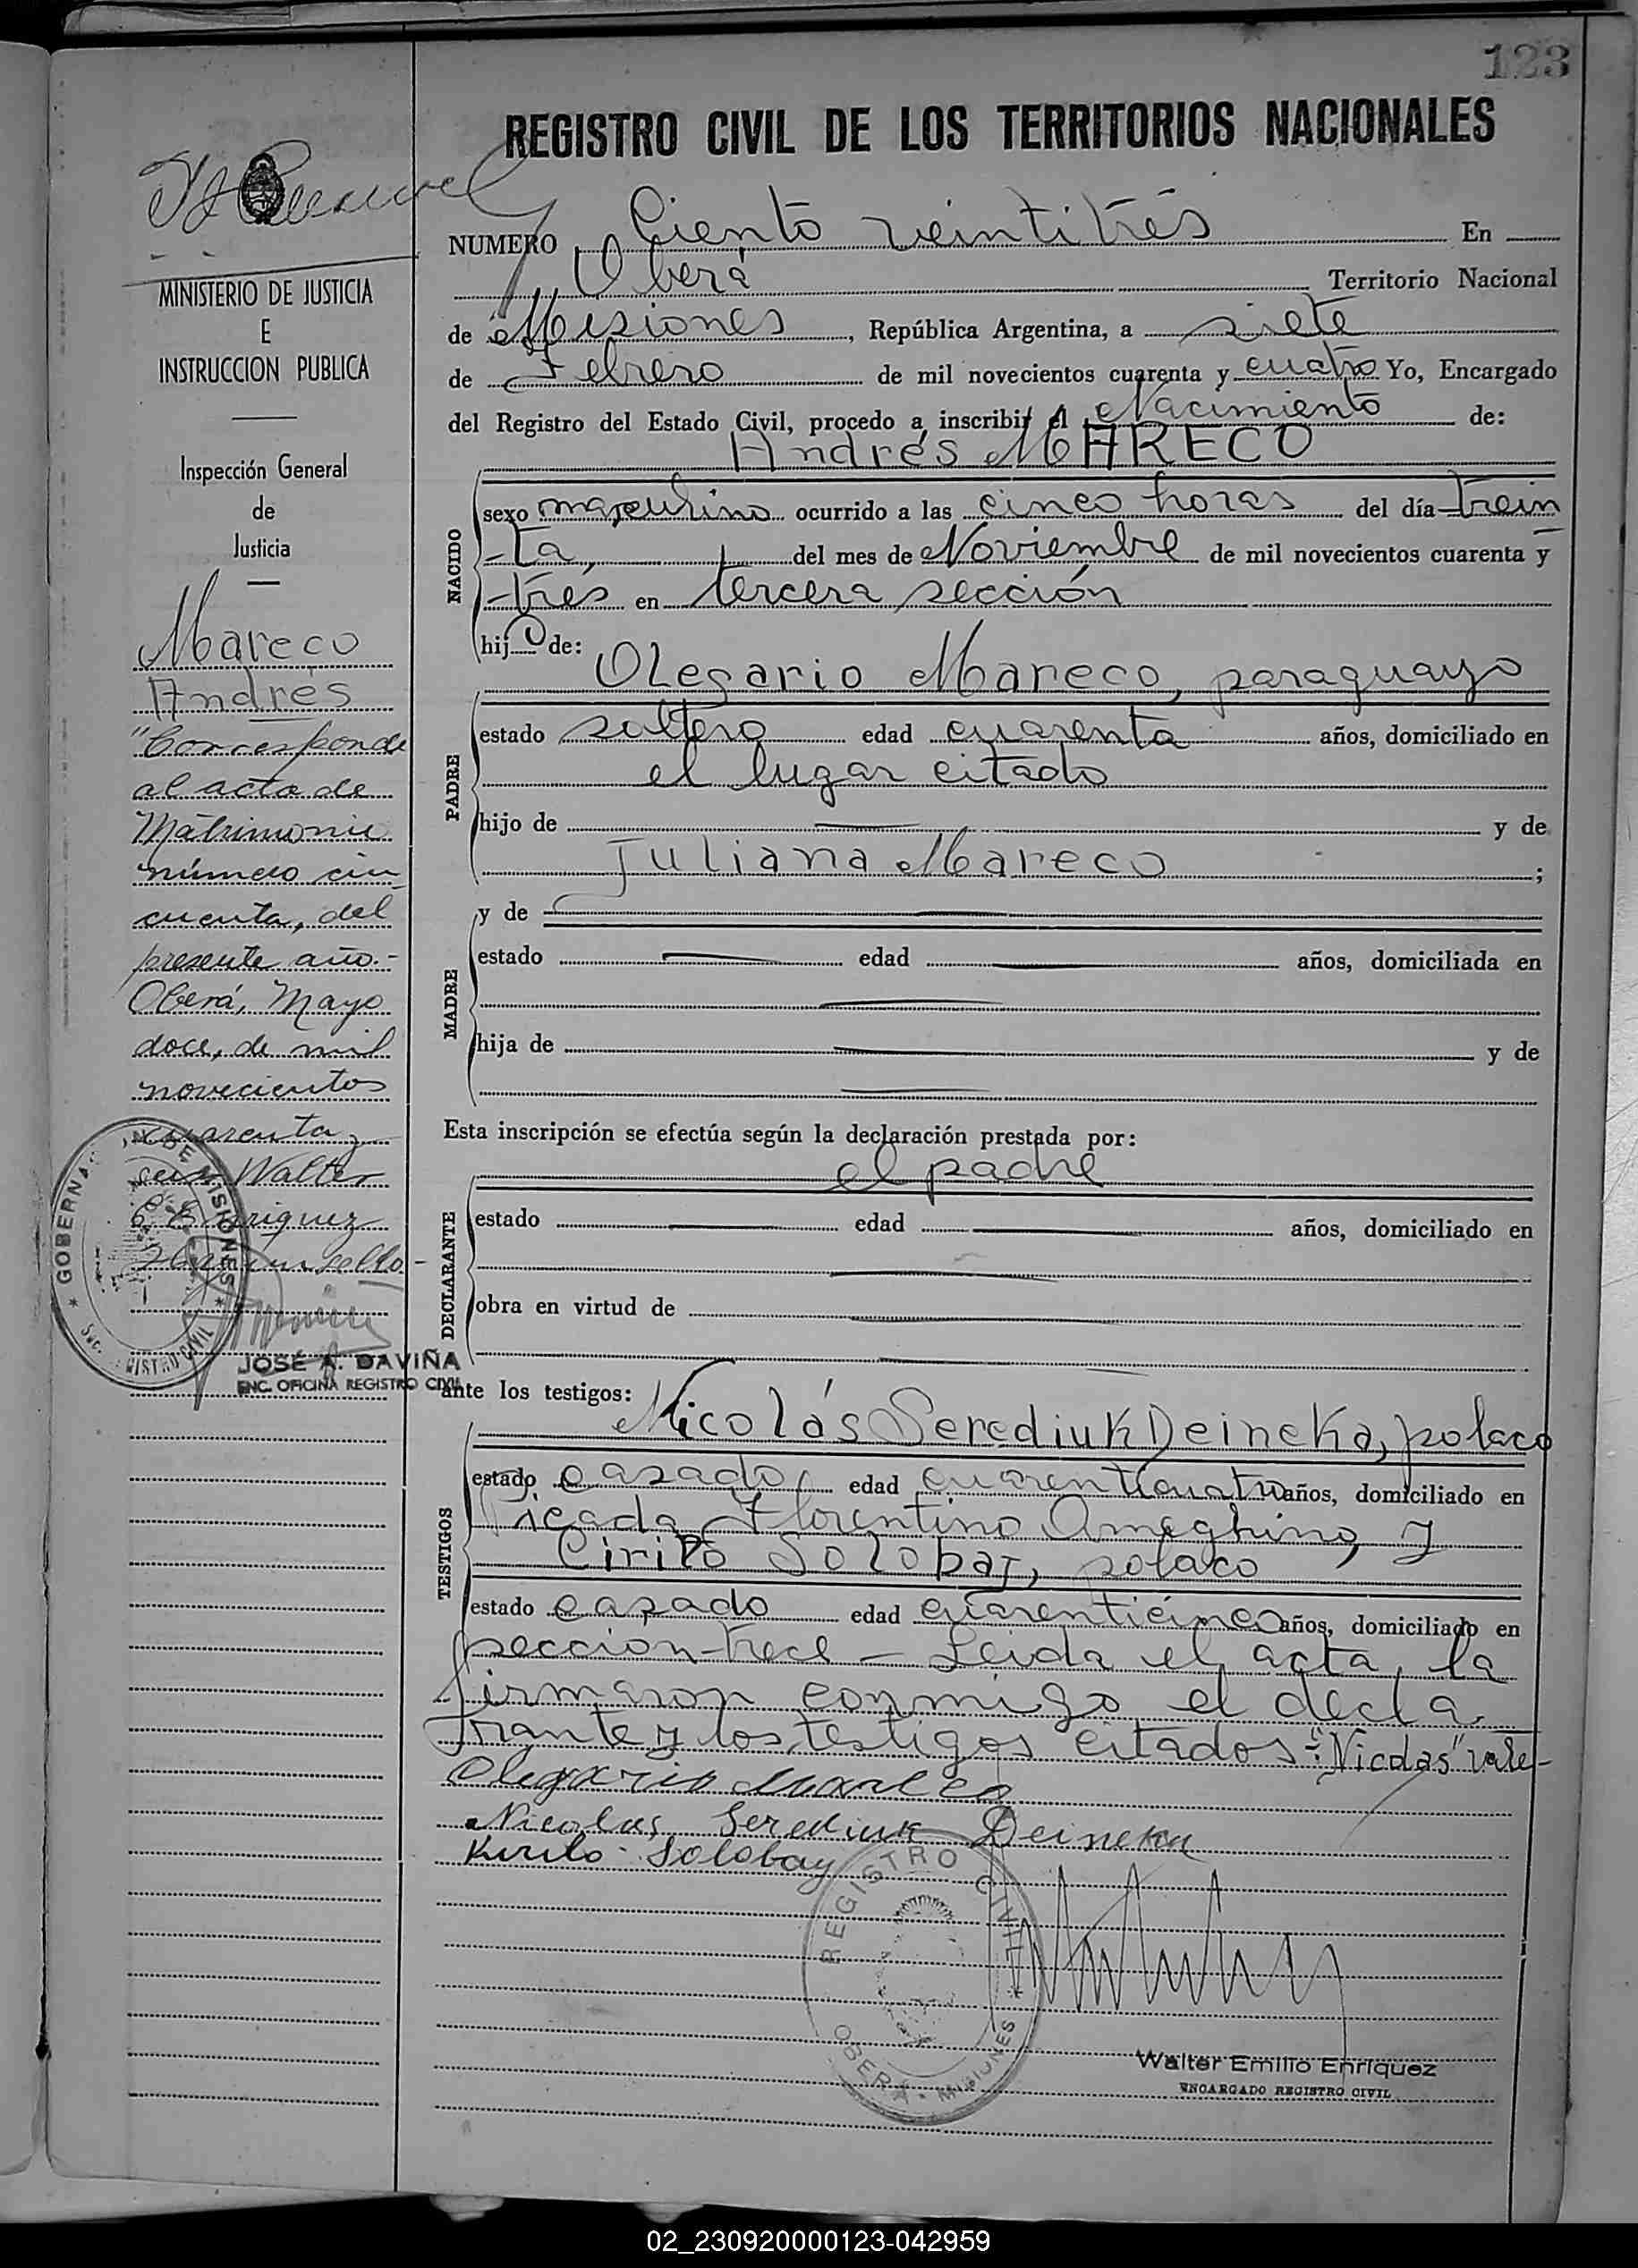 123
REGISTRO CIVIL DE LOS TERRITORIOS NACIONALES
NUMERO Ciento veintitrés En
Oberá Territorio Nacional
de Misiones, República Argentina, a siete
de Febrero de mil novecientos cuarenta y cuatro Yo, Encargado
del Registro del Estado Civil, procedo a inscribir el Nacimiento de:
Andrés MARECO
NACIDO
sexo masculino ocurrido a las cinco horas del día trein
-ta, del mes de Noviembre de mil novecientos cuarenta y
-trés en tercera sección
hijo de:
Olegario Mareco, paraguayo
PADRE
estado soltero edad cuarenta años, domiciliado en
el lugar citado
hijo de y de
Juliana Mareco ;
MADRE
y de
estado edad años, domiciliada en
hija de y de
Esta inscripción se efectúa según la declaración prestada por:
el padre
DECLARANTE
estado edad años, domiciliado en
obra en virtud de
ante los testigos:
Nicolás Serediuk Deineka, polaco
TESTIGOS
estado casado edad cuarenticuatro años, domiciliado en
Picada Florentino Ameghino, y
Cirilo Solobay, polaco
estado casado edad cuarenticinco años, domiciliado en
sección trece - Leida el acta, la
firmaron conmigo el decla
rante y los testigos citados -: "Nicolás" vale-
Olegario Mareco
Nicolas Serediuk Deineka
Kirilo Solobay
REGISTRO CIVIL
OBERÁ - MISIONES
Walter Emilio Enriquez
ENCARGADO REGISTRO CIVIL
MINISTERIO DE JUSTICIA
E
INSTRUCCION PUBLICA
Inspección General
de
Justicia
Mareco
Andrés
"Corresponde
al acta de
Matrimonio
número cin
cuenta, del
presente año.-
Oberá, Mayo
doce, de mil
novecientos
cuarenta y
seis Walter
E. Enriquez
Hay un sello.-
GOBERNACION DE MISIONES
REGISTRO CIVIL
JOSÉ A. DAVIÑA
ENC. OFICINA REGISTRO CIVIL
02_230920000123-042959